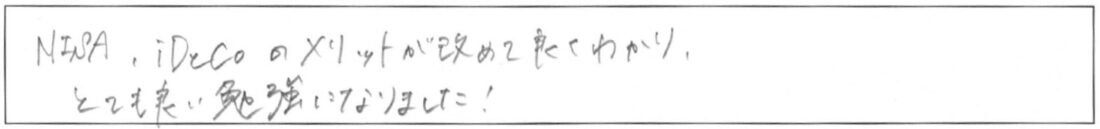 NISA、iDeCoのメリットが改めて良くわかり、
とても良い勉強になりました！